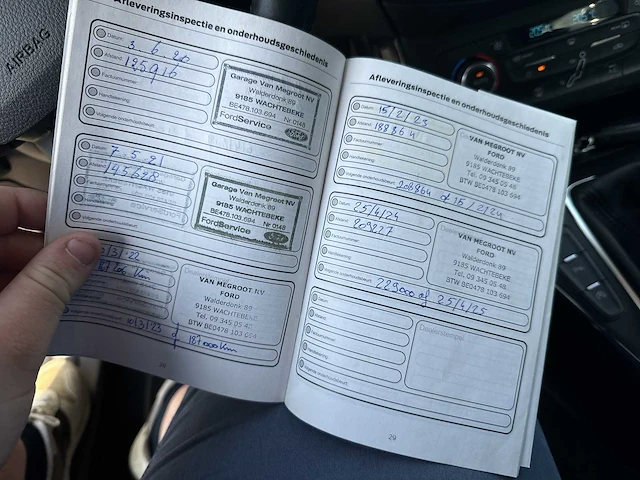 AIRBAG
Afleveringsinspectie en onderhoudsgeschiedenis
Datum: 3.6.20
Afstand: 125916
Factuurnummer:
Handtekening:
Volgende onderhoudsbeurt:
Garage Van Megroot NV
Walderdonk 89
9185 WACHTEBEKE
BE478.103.694 Nr 0148
FordService
Ford
Datum: 7.5.21
Afstand: 145628
Factuurnummer:
Handtekening:
Volgende onderhoudsbeurt:
Garage Van Megroot NV
Walderdonk 89
9185 WACHTEBEKE
BE478.103.694 Nr 0148
FordService
Ford
/3/22
Km
VAN MEGROOT NV
FORD
Walderdonk 89
9185 WACHTEBEKE
Tel. 09 345 05 48
BTW BE0478 103 694
/3/23 of 187000 Km
28
Afleveringsinspectie en onderhoudsgeschiedenis
Datum: 15/2/23
Afstand: 188864
Factuurnummer:
Handtekening:
Volgende onderhoudsbeurt: 208864 of 15/2/24
VAN MEGROOT NV
FORD
Walderdonk 89
9185 WACHTEBEKE
Tel. 09 345 05 48
BTW BE0478 103 694
Datum: 25/4/24
Afstand: 209227
Factuurnummer:
Handtekening:
Volgende onderhoudsbeurt: 229000 of 25/4/25
VAN MEGROOT NV
FORD
Walderdonk 89
9185 WACHTEBEKE
Tel. 09 345 05 48.
BTW BE0478 103 694
Datum:
Afstand:
Factuurnummer:
Handtekening:
Volgende onderhoudsbeurt:
Dealerstempel
29